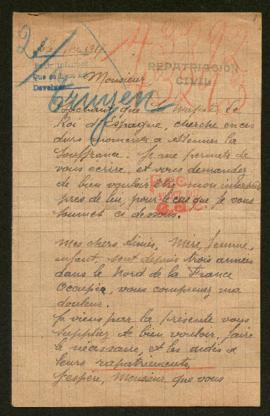 REPATRIACION
CIVIL
Monsieur
Truyen
Roi d'Espagne, cherche en ces
durs moments a attenuer la
Souffrance. Je me permets de
vous ecrire, et vous demander
de bien vouloir être mon
près de lui, pour le cas que je vous
soumet ci dessous.
Mes chers Aimés, Mère, femme,
enfant, sont depuis trois années
dans le Nord de la France
Occupée, vous comprenez ma
douleur.
Je viens par la présente vous
Supplier de bien vouloir, faire
le nécessaire, et les aider à
leurs rapatriements.
J'espère, Monsieur que vous